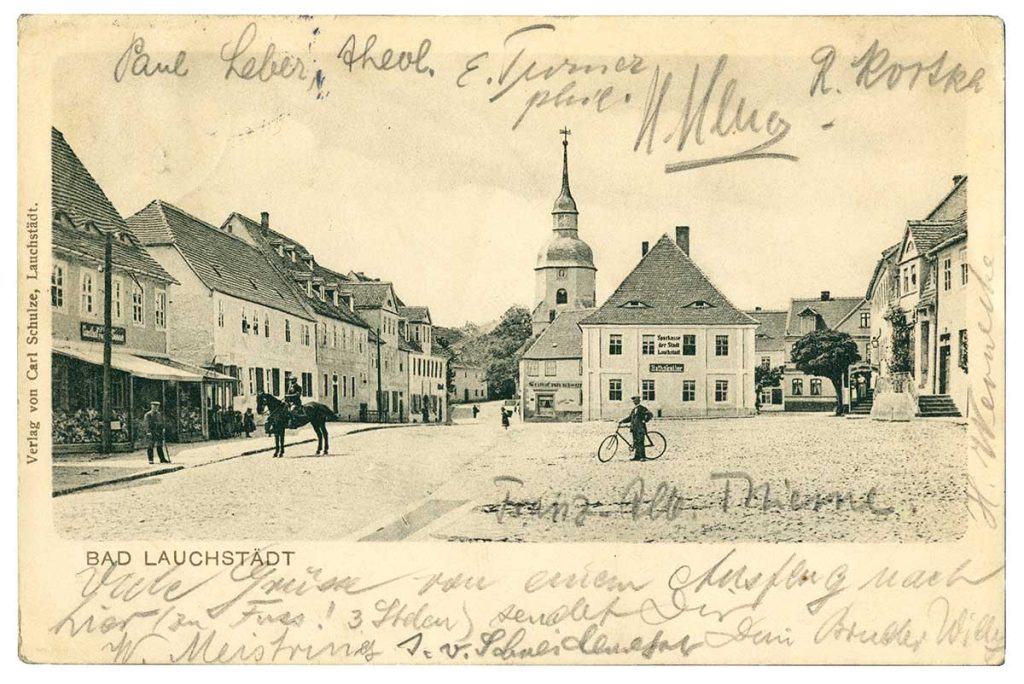 Paul Leber, theol.
E. Turner
phil.
R. Kortska
Verlag von Carl Schulze, Lauchstädt.
Sparkasse
der Stadt
Lauchstädt
Rathskeller
Franz Alb. Thieme.
H. Wernicke
BAD LAUCHSTÄDT
Viele Grüsse von einem Ausflug nach
hier (zu Fuss! 3 Stden) sendet Dir Dein Bruder Willy
W. Meistring